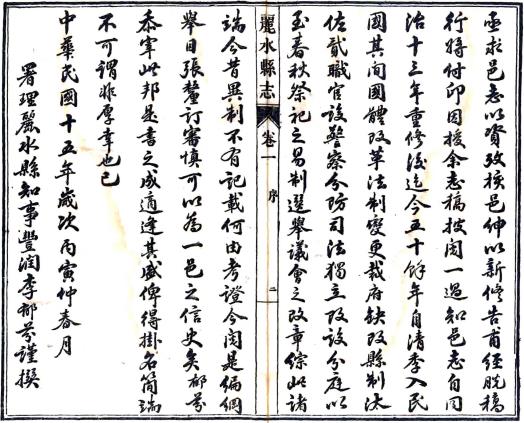 亟求邑志以資攷核邑紳以新修告甫經脫稿
行將付印因援余志稿披閱一過知邑志自同
治十三年重修後迄今五十餘年自清季入民
國其間國體改革法制變更裁府缺改縣制汰
佐貳職官設警察分防司法獨立改設分庭以
至春秋祭祀之易制選舉議會之改章綜此諸
麗水縣志
卷一
序
二
端今昔異制不有記載何由考證今閱是編綱
舉目張釐訂審慎可以為一邑之信史矣郁芬
忝宰此邦是書之成適逢其盛俾得掛名簡端
不可謂非厚幸也已
中華民國十五年歲次丙寅仲春月
署理麗水縣知事豐潤李郁芬謹撰